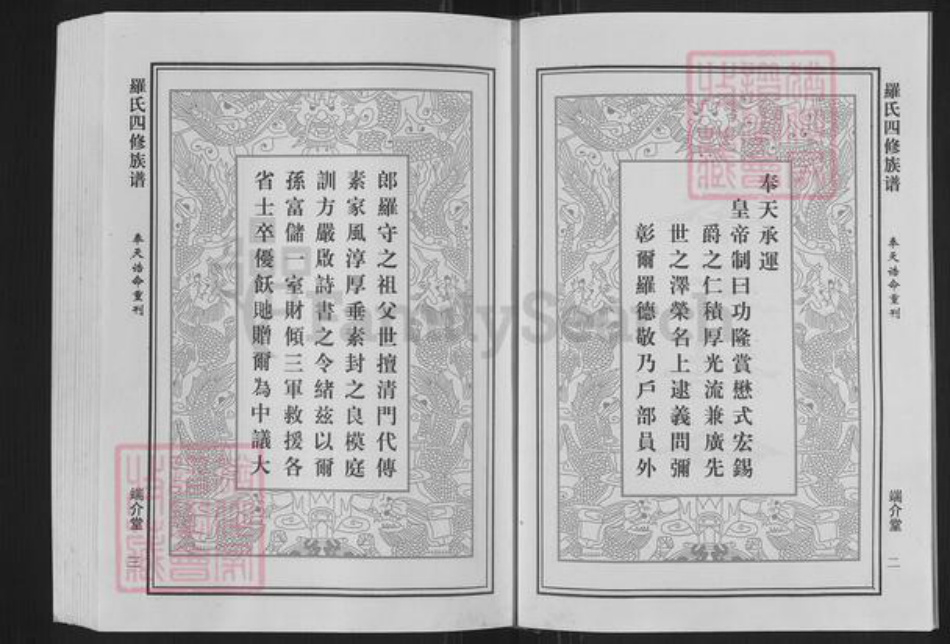 羅氏四修族谱
奉天诰命重刊
端介堂
二
奉天承運
皇帝制曰功隆賞懋式宏錫
爵之仁積厚光流兼廣先
世之澤榮名上逮義問彌
彰爾羅德敬乃戶部員外
郎羅守之祖父世擅清門代傳
素家風淳厚垂素封之良模庭
訓方嚴啟詩書之令緒茲以爾
孫富儲一室財傾三軍救援各
省士卒優飫貤贈爾為中議大
羅氏四修族谱
奉天诰命重刊
端介堂
三
FamilySearch